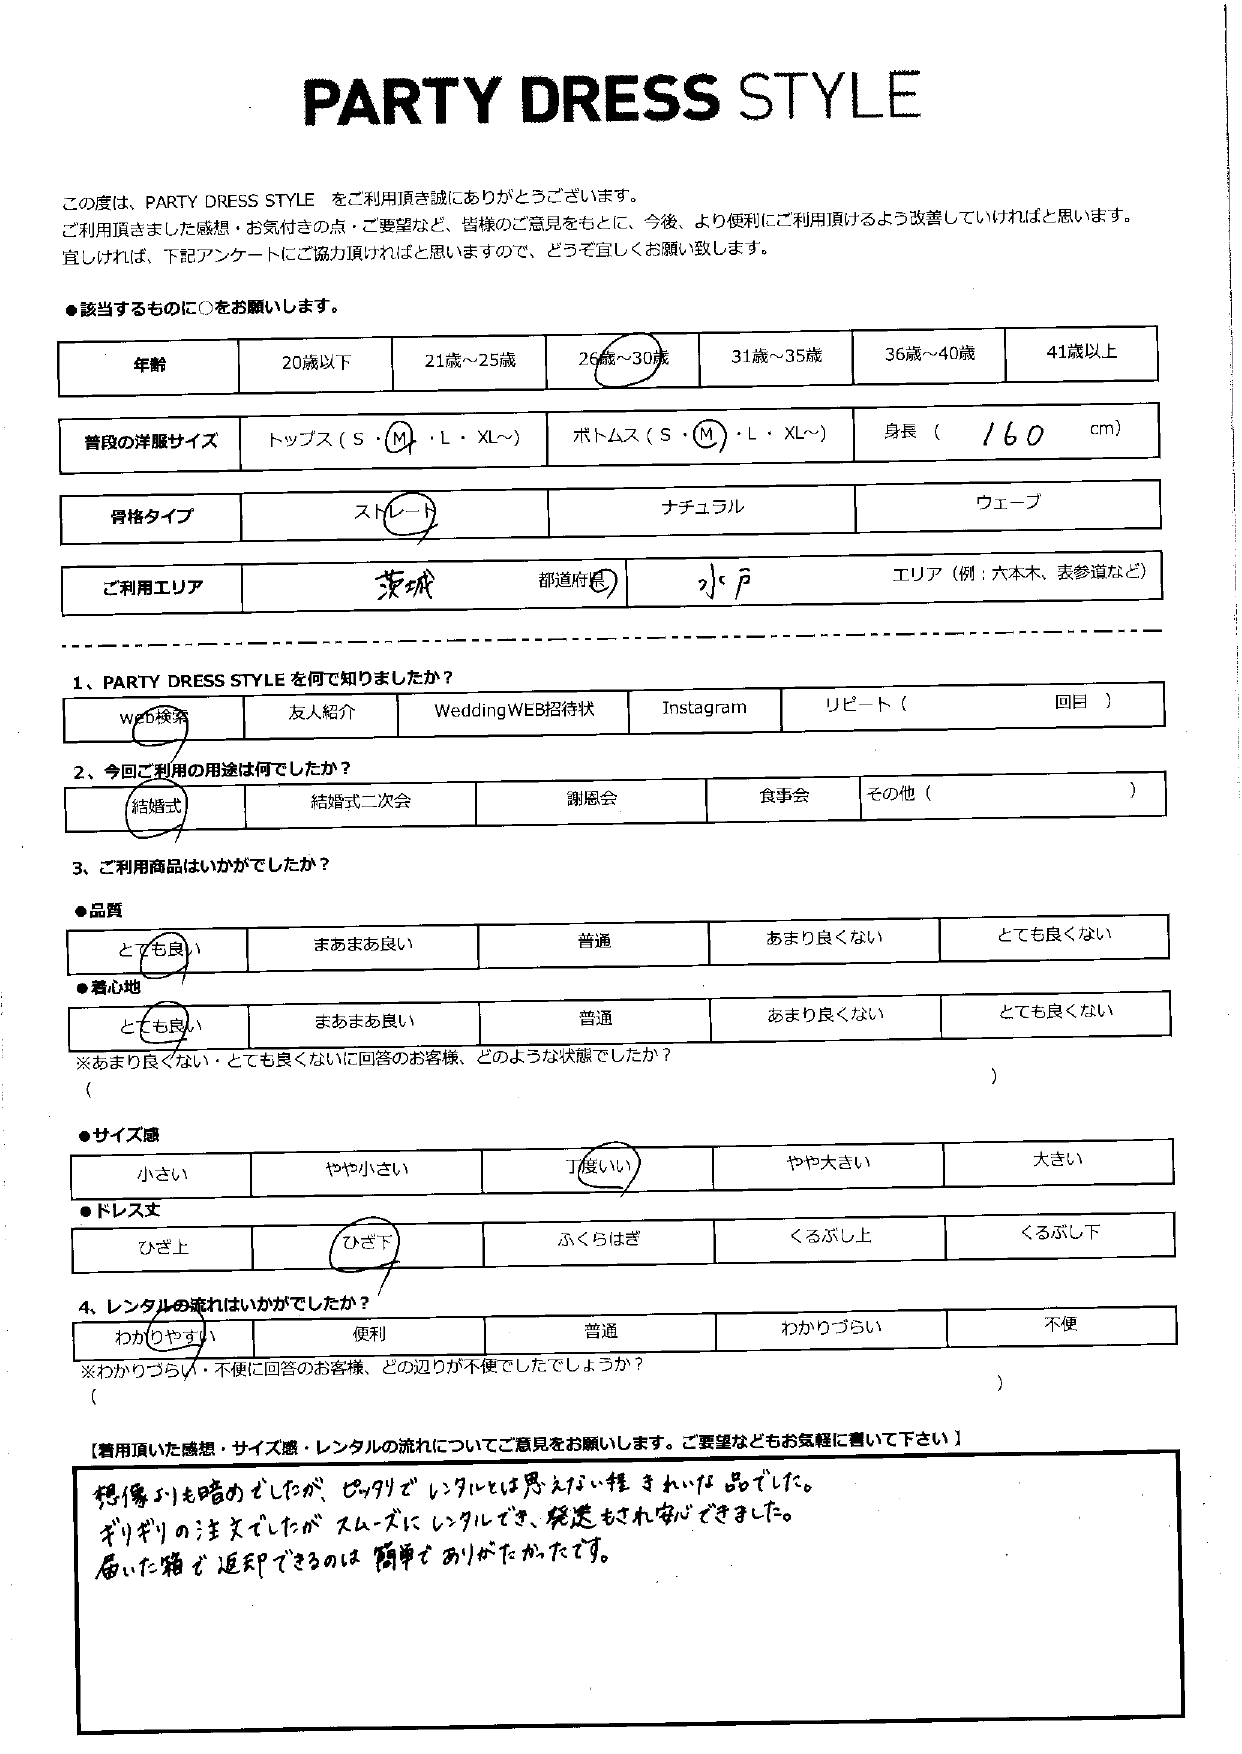 PARTY DRESS STYLE
この度は、PARTY DRESS STYLE をご利用頂き誠にありがとうございます。
ご利用頂きました感想・お気付きの点・ご要望など、皆様のご意見をもとに、今後、より便利にご利用頂けるよう改善していければと思います。
宜しければ、下記アンケートにご協力頂ければと思いますので、どうぞ宜しくお願い致します。
●該当するものに○をお願いします。
年齢 20歳以下 21歳～25歳 26歳～30歳 31歳～35歳 36歳～40歳 41歳以上
普段の洋服サイズ トップス（ S ・ M ・ L ・ XL～） ボトムス（ S ・ M ・ L ・ XL～） 身長 （ 160 cm）
骨格タイプ ストレート ナチュラル ウェーブ
ご利用エリア 茨城 都道府県 水戸 エリア（例：六本木、表参道など）
1、PARTY DRESS STYLE を何で知りましたか？
Web検索 友人紹介 WeddingWEB招待状 Instagram リピート（ 回目 ）
2、今回ご利用の用途は何でしたか？
結婚式 結婚式二次会 謝恩会 食事会 その他（ ）
3、ご利用商品はいかがでしたか？
●品質
とても良い まあまあ良い 普通 あまり良くない とても良くない
●着心地
とても良い まあまあ良い 普通 あまり良くない とても良くない
※あまり良くない・とても良くないに回答のお客様、どのような状態でしたか？
（ ）
●サイズ感
小さい やや小さい 丁度いい やや大きい 大きい
●ドレス丈
ひざ上 ひざ下 ふくらはぎ くるぶし上 くるぶし下
4、レンタルの流れはいかがでしたか？
わかりやすい 便利 普通 わかりづらい 不便
※わかりづらい・不便に回答のお客様、どの辺りが不便でしたでしょうか？
（ ）
【着用頂いた感想・サイズ感・レンタルの流れについてご意見をお願いします。ご要望などもお気軽に書いて下さい】
想像よりも暗めでしたが、ピッタリでレンタルとは思えない程きれいな品でした。
ギリギリの注文でしたがスムーズにレンタルでき、発送もされ安心できました。
届いた箱で返却できるのは簡単でありがたかったです。